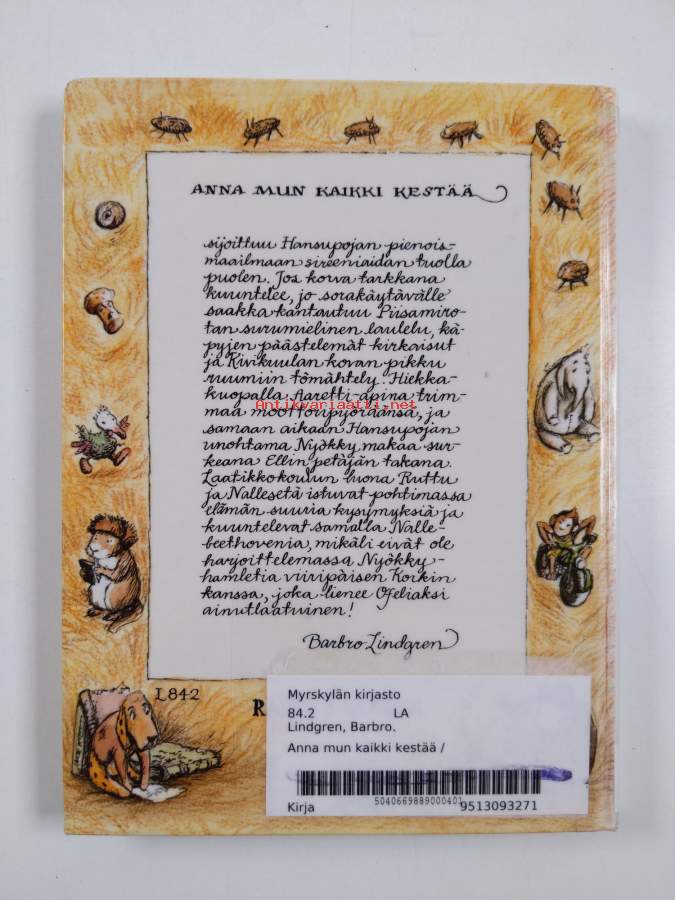 ANNA MUN KAIKKI KESTÄÄ
sijoittuu Hansupojan pienois-
maailmaan sireeniaidan tuolla
puolen. Jos korva tarkkana
kuuntelee, jo sorakäytävälle
saakka kantautuu Piisamiro-
tan surumielinen laulelu, kä-
pyjen päästelemät kirkaisut
ja Kivikuulan kovan pikku
ruumiin tömähtely. Hiekka-
kuopalla Aaretti-apina trim-
maa moottoripyöräänsä, ja
Antikvariaatti.net
samaan aikaan Hansupojan
unohtama Nyökky makaa sur-
keana Ellin petäjän takana.
Laatikkokoulun luona Ruttu
ja Nallesetä istuvat pohtimassa
elämän suuria kysymyksiä ja
kuuntelevat samalla Nalle-
beethovenia, mikäli eivät ole
harjoittelemassa Nyökky-
hamletia viiripäisen Korkin
kanssa, joka lienee Ofeliaksi
ainutlaatuinen!
Barbro Lindgren
L842
R
Myrskylän kirjasto
84.2 LA
Lindgren, Barbro.
Anna mun kaikki kestää /
5040669889000401
Kirja 9513093271